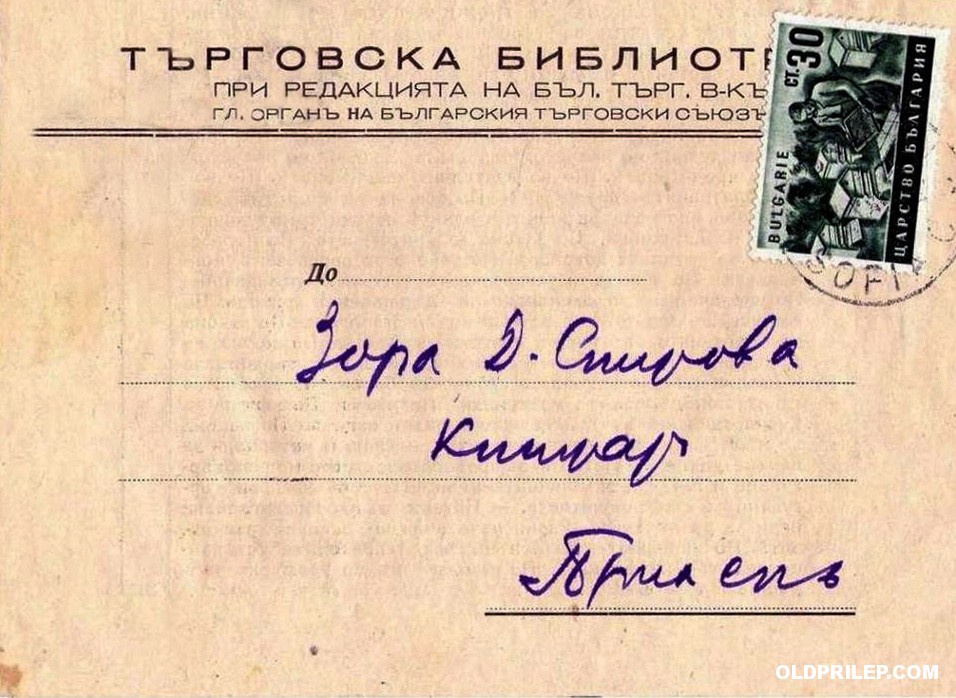 ТЪРГОВСКА БИБЛИОТ
ПРИ РЕДАКЦИЯТА НА БЪЛ. ТЪРГ. В-КЪ
ГЛ. ОРГАНЪ НА БЪЛГАРСКИЯ ТЪРГОВСКИ СЪЮЗЪ
СТ. 30
BULGARIE
ЦАРСТВО БЪЛГАРИЯ
SOFIA
До
Зора Д. Спирова
Книжар
Прилепъ
OLDPRILEP.COM